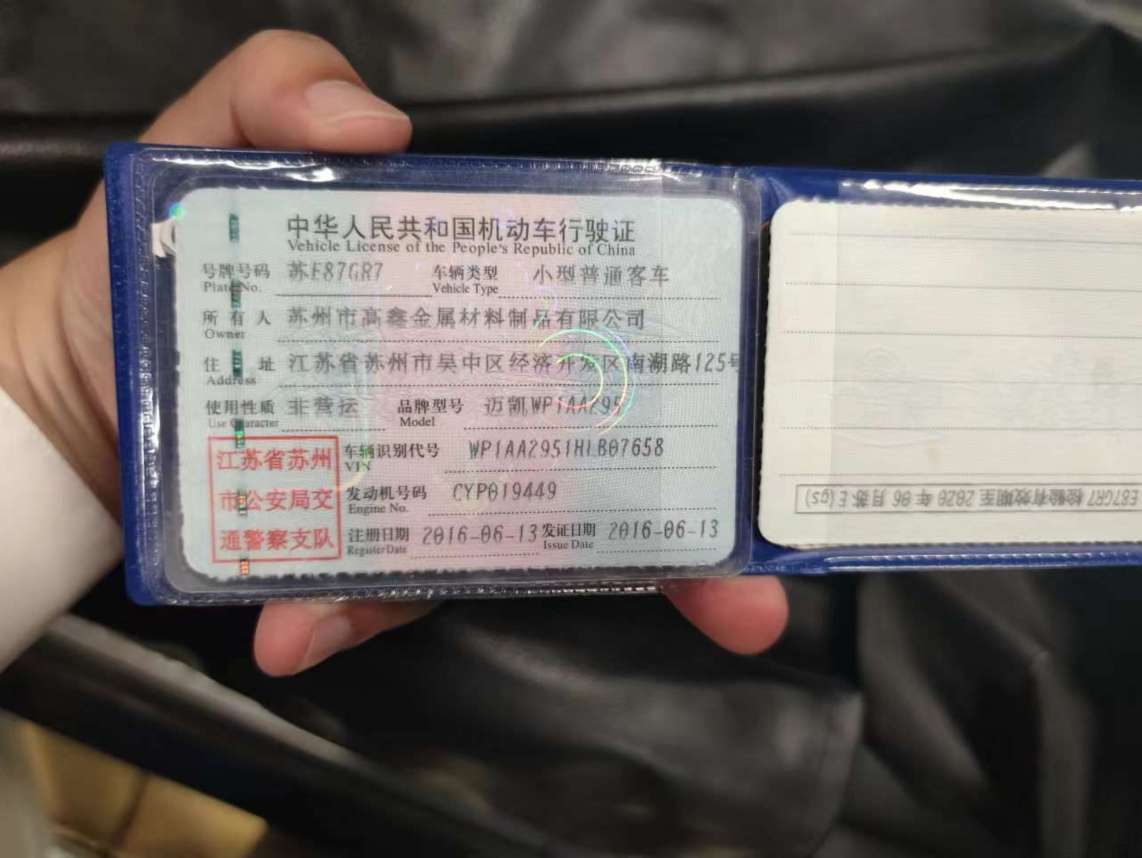 中华人民共和国机动车行驶证
Vehicle License of the People's Republic of China
号牌号码 苏E87GR7 车辆类型 小型普通客车
Plate No. Vehicle Type
所有人 苏州市高鑫金属材料制品有限公司
Owner
住址 江苏省苏州市吴中区经济开发区南湖路125号
Address
使用性质 非营运 品牌型号 迈凯WP1AA295
Use Character Model
江苏省苏州 车辆识别代号 WP1AA2951HLB07658
VIN
市公安局交 发动机号码 CYP019449
Engine No.
通警察支队 注册日期 2016-06-13 发证日期 2016-06-13
Register Date Issue Date
E87GR7 检验有效期至 2020 年 06 月 苏E(gs)